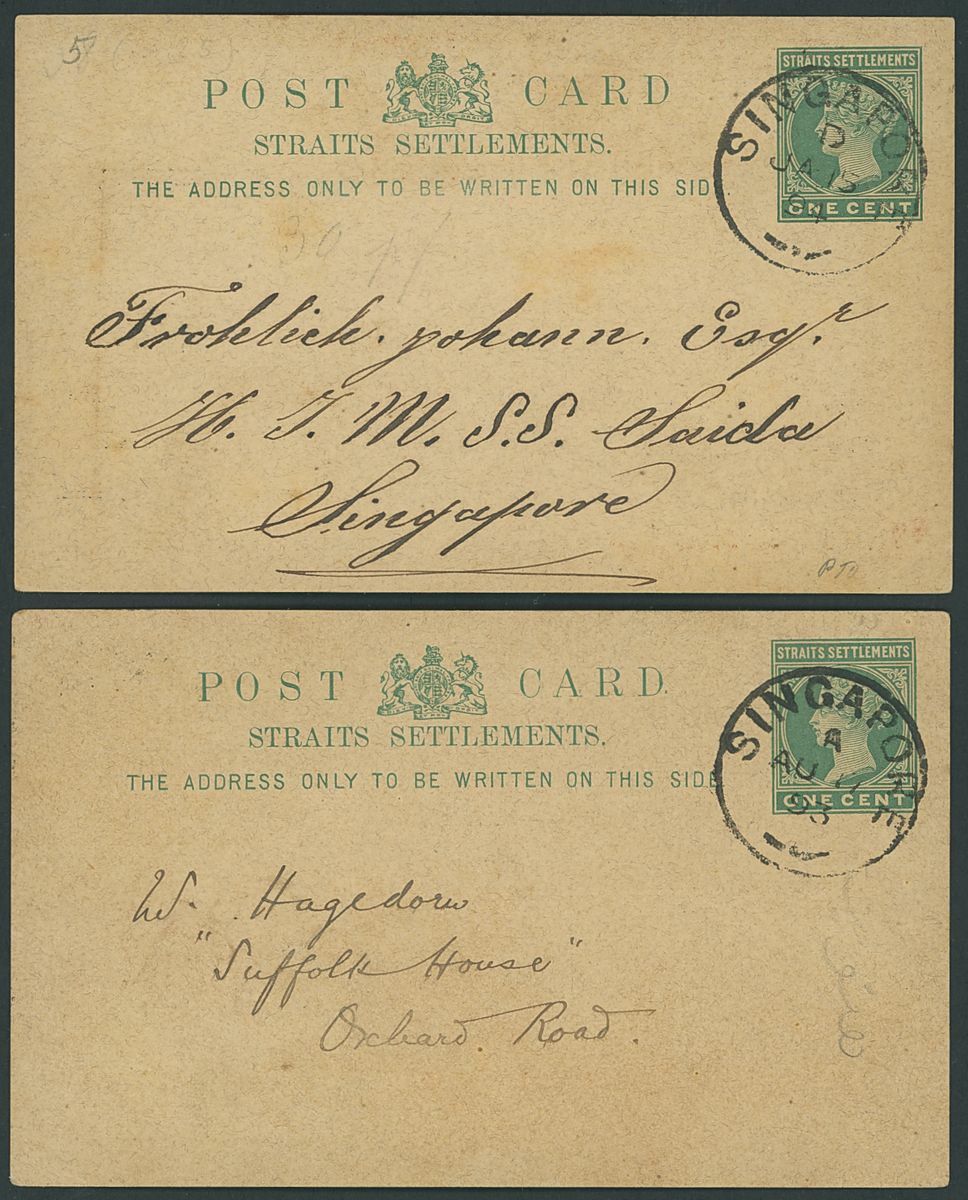 5
POST CARD
STRAITS SETTLEMENTS.
THE ADDRESS ONLY TO BE WRITTEN ON THIS SIDE.
STRAITS SETTLEMENTS
ONE CENT
SINGAPORE
D
JA 15
94
Frohlich. Johann. Esqr.
H. I. M. S.S. Saida
Singapore
PTO
POST CARD.
STRAITS SETTLEMENTS.
THE ADDRESS ONLY TO BE WRITTEN ON THIS SIDE
STRAITS SETTLEMENTS
ONE CENT
SINGAPORE
A
AU 17
93
W. Hagedorn
"Suffolk House"
Orchard. Road.